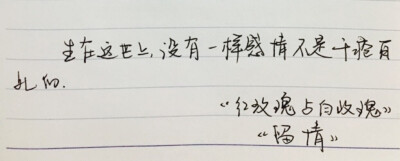 生在这世上,没有一样感情不是千疮百
孔的.
“红玫瑰与白玫瑰”
“留情”